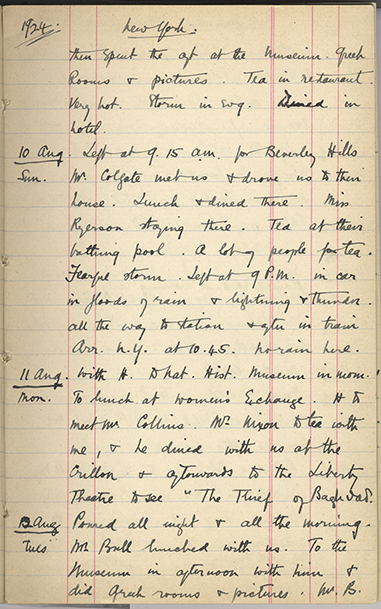 1924. New York.
then spent the aft at the Museum. Greek
Rooms & pictures. Tea in restaurant.
Very hot. Storm in evg. Dined in
hotel.
10 Aug. Left at 9.15 am. for Beverley Hills
Sun. Mr. Colgate met us & drove us to their
house. Lunch & dined there. Miss
Ryerson staying there. Tea at their
bathing pool. A lot of people for tea.
Fearful storm. Left at 9 P.M. in car
in floods of rain & lightning & thunder
all the way to station & after in train
Arr. N.Y. at 10.45. no rain here.
11 Aug. With H. to Nat. Hist. Museum in morn.
Mon. To lunch at Women's Exchange. H to
meet Mr Collins. Mr. Nixon to tea with
me, & he dined with us at the
Crillon & aftowards to the Liberty
Theatre to see "The Thief of Baghdad.
12 Aug Poured all night & all the morning.
Tues Mr Bull lunched with us. To the
Museum in afternoon with him &
did Greek rooms & pictures. Mr. B.